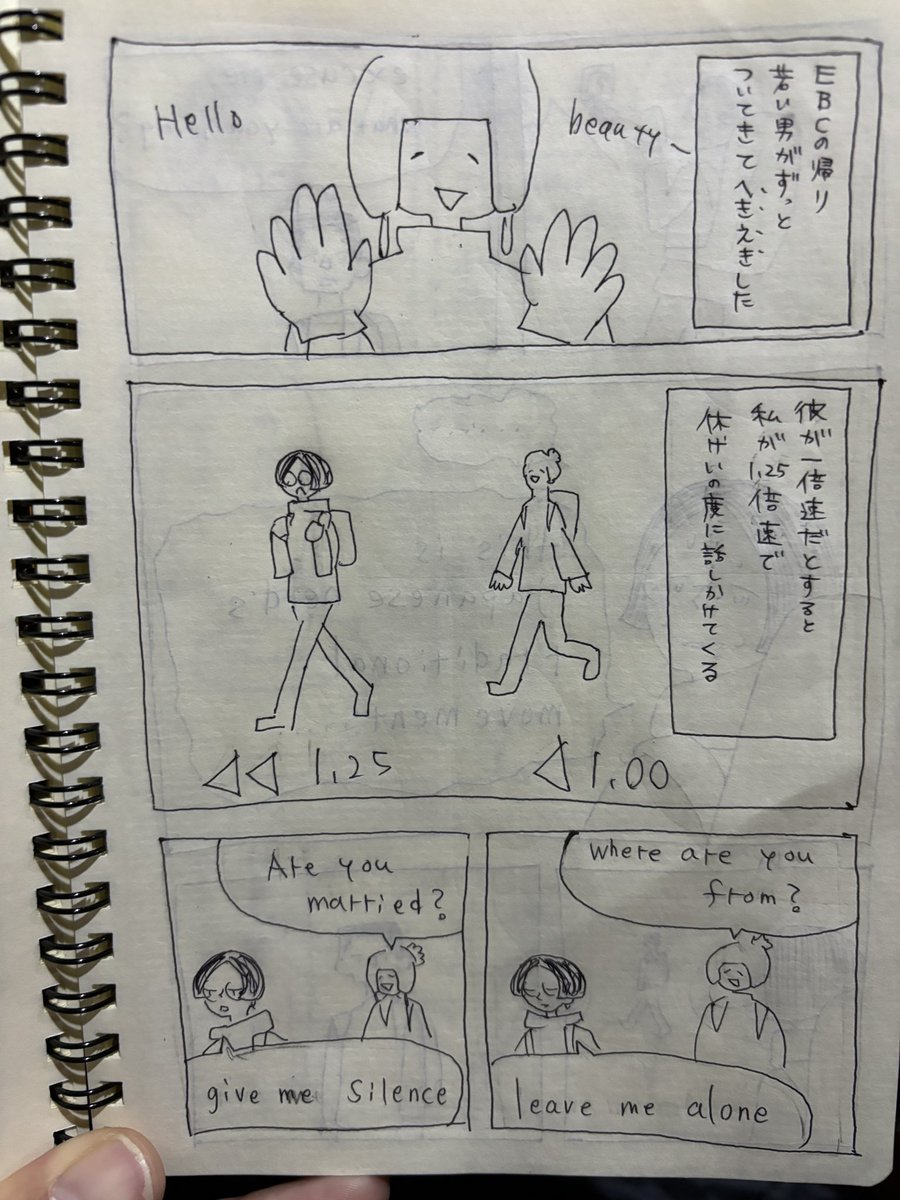 EBCの帰り
若い男がずっと
ついてきてへきえきした
Hello
beauty~
彼が一倍速だとすると
私が1.25倍速で
休けいの度に話しかけてくる
◁◁ 1.25
◁ 1.00
where are you
from?
leave me alone
Are you
married?
give me silence